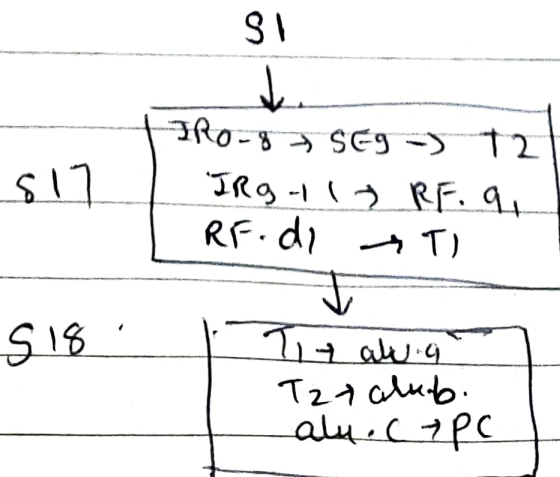 S1
↓
IR0-8 → SE9 → T2
S17
IR9-11 → RF.a1
RF.d1 → T1
↓
S18
T1 → alu.a
T2 → alu.b.
alu.c → PC